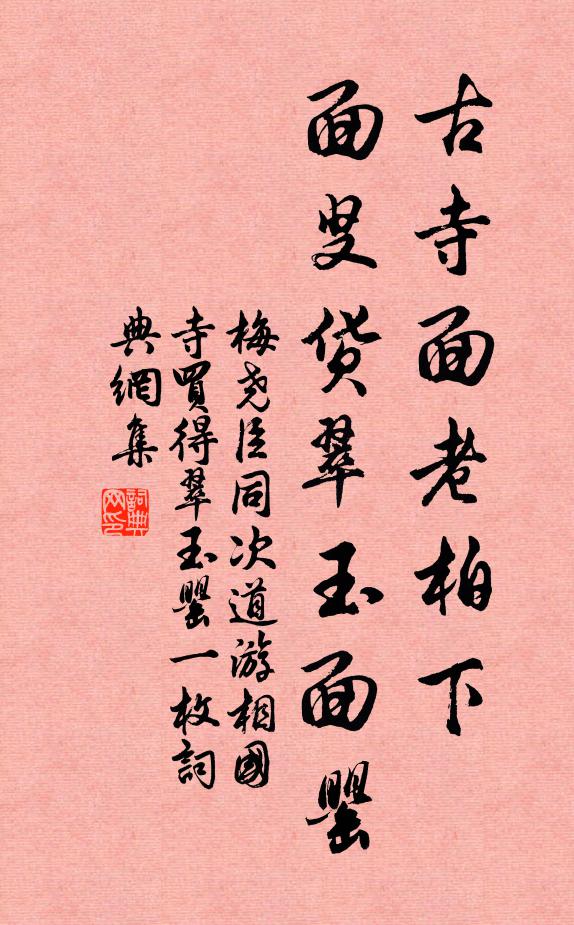 古寺面老柏下
面叟货翠玉面罂
梅尧臣同次道游相國
寺買得翠玉罌一枚詞
典網集
詞典
网印